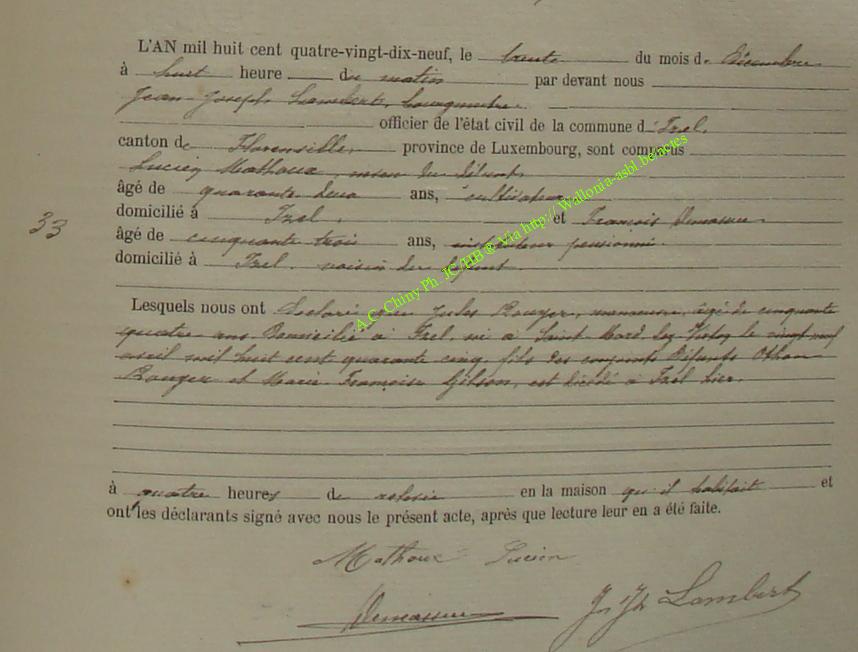 L'AN mil huit cent quatre-vingt-dix-neuf, le trente du mois de Décembre
à huit heure du matin par devant nous
Jean-Joseph Lambert, bourgmestre
officier de l'état civil de la commune d'Izel,
canton de Florenville, province de Luxembourg, sont comparus
Lucien Mathoux, du défunt,
âgé de quarante deux ans, cultivateur
domicilié à Izel, et François Demasure
âgé de cinquante trois ans, instituteur pensionné.
domicilié à Izel. voisin du défunt.
33
Lesquels nous ont déclaré que Jules Rouyer, manoeuvre, âgé de cinquante
quatre ans domicilié à Izel, né à Saint Mard lez Virton le vingt neuf
avril mil huit cent quarante cinq, fils des conjoints défunts Othon
Rouyer et Marie Françoise Gilson, est décédé à Izel hier.
à quatre heures de relevée en la maison qu'il habitait et
ont les déclarants signé avec nous le présent acte, après que lecture leur en a été faite.
Mathoux Lucien
Demasure
J. Jh Lambert
A.C. Chiny Ph. JC/HB ® Via http:// Wallonia-asbl.be/actes